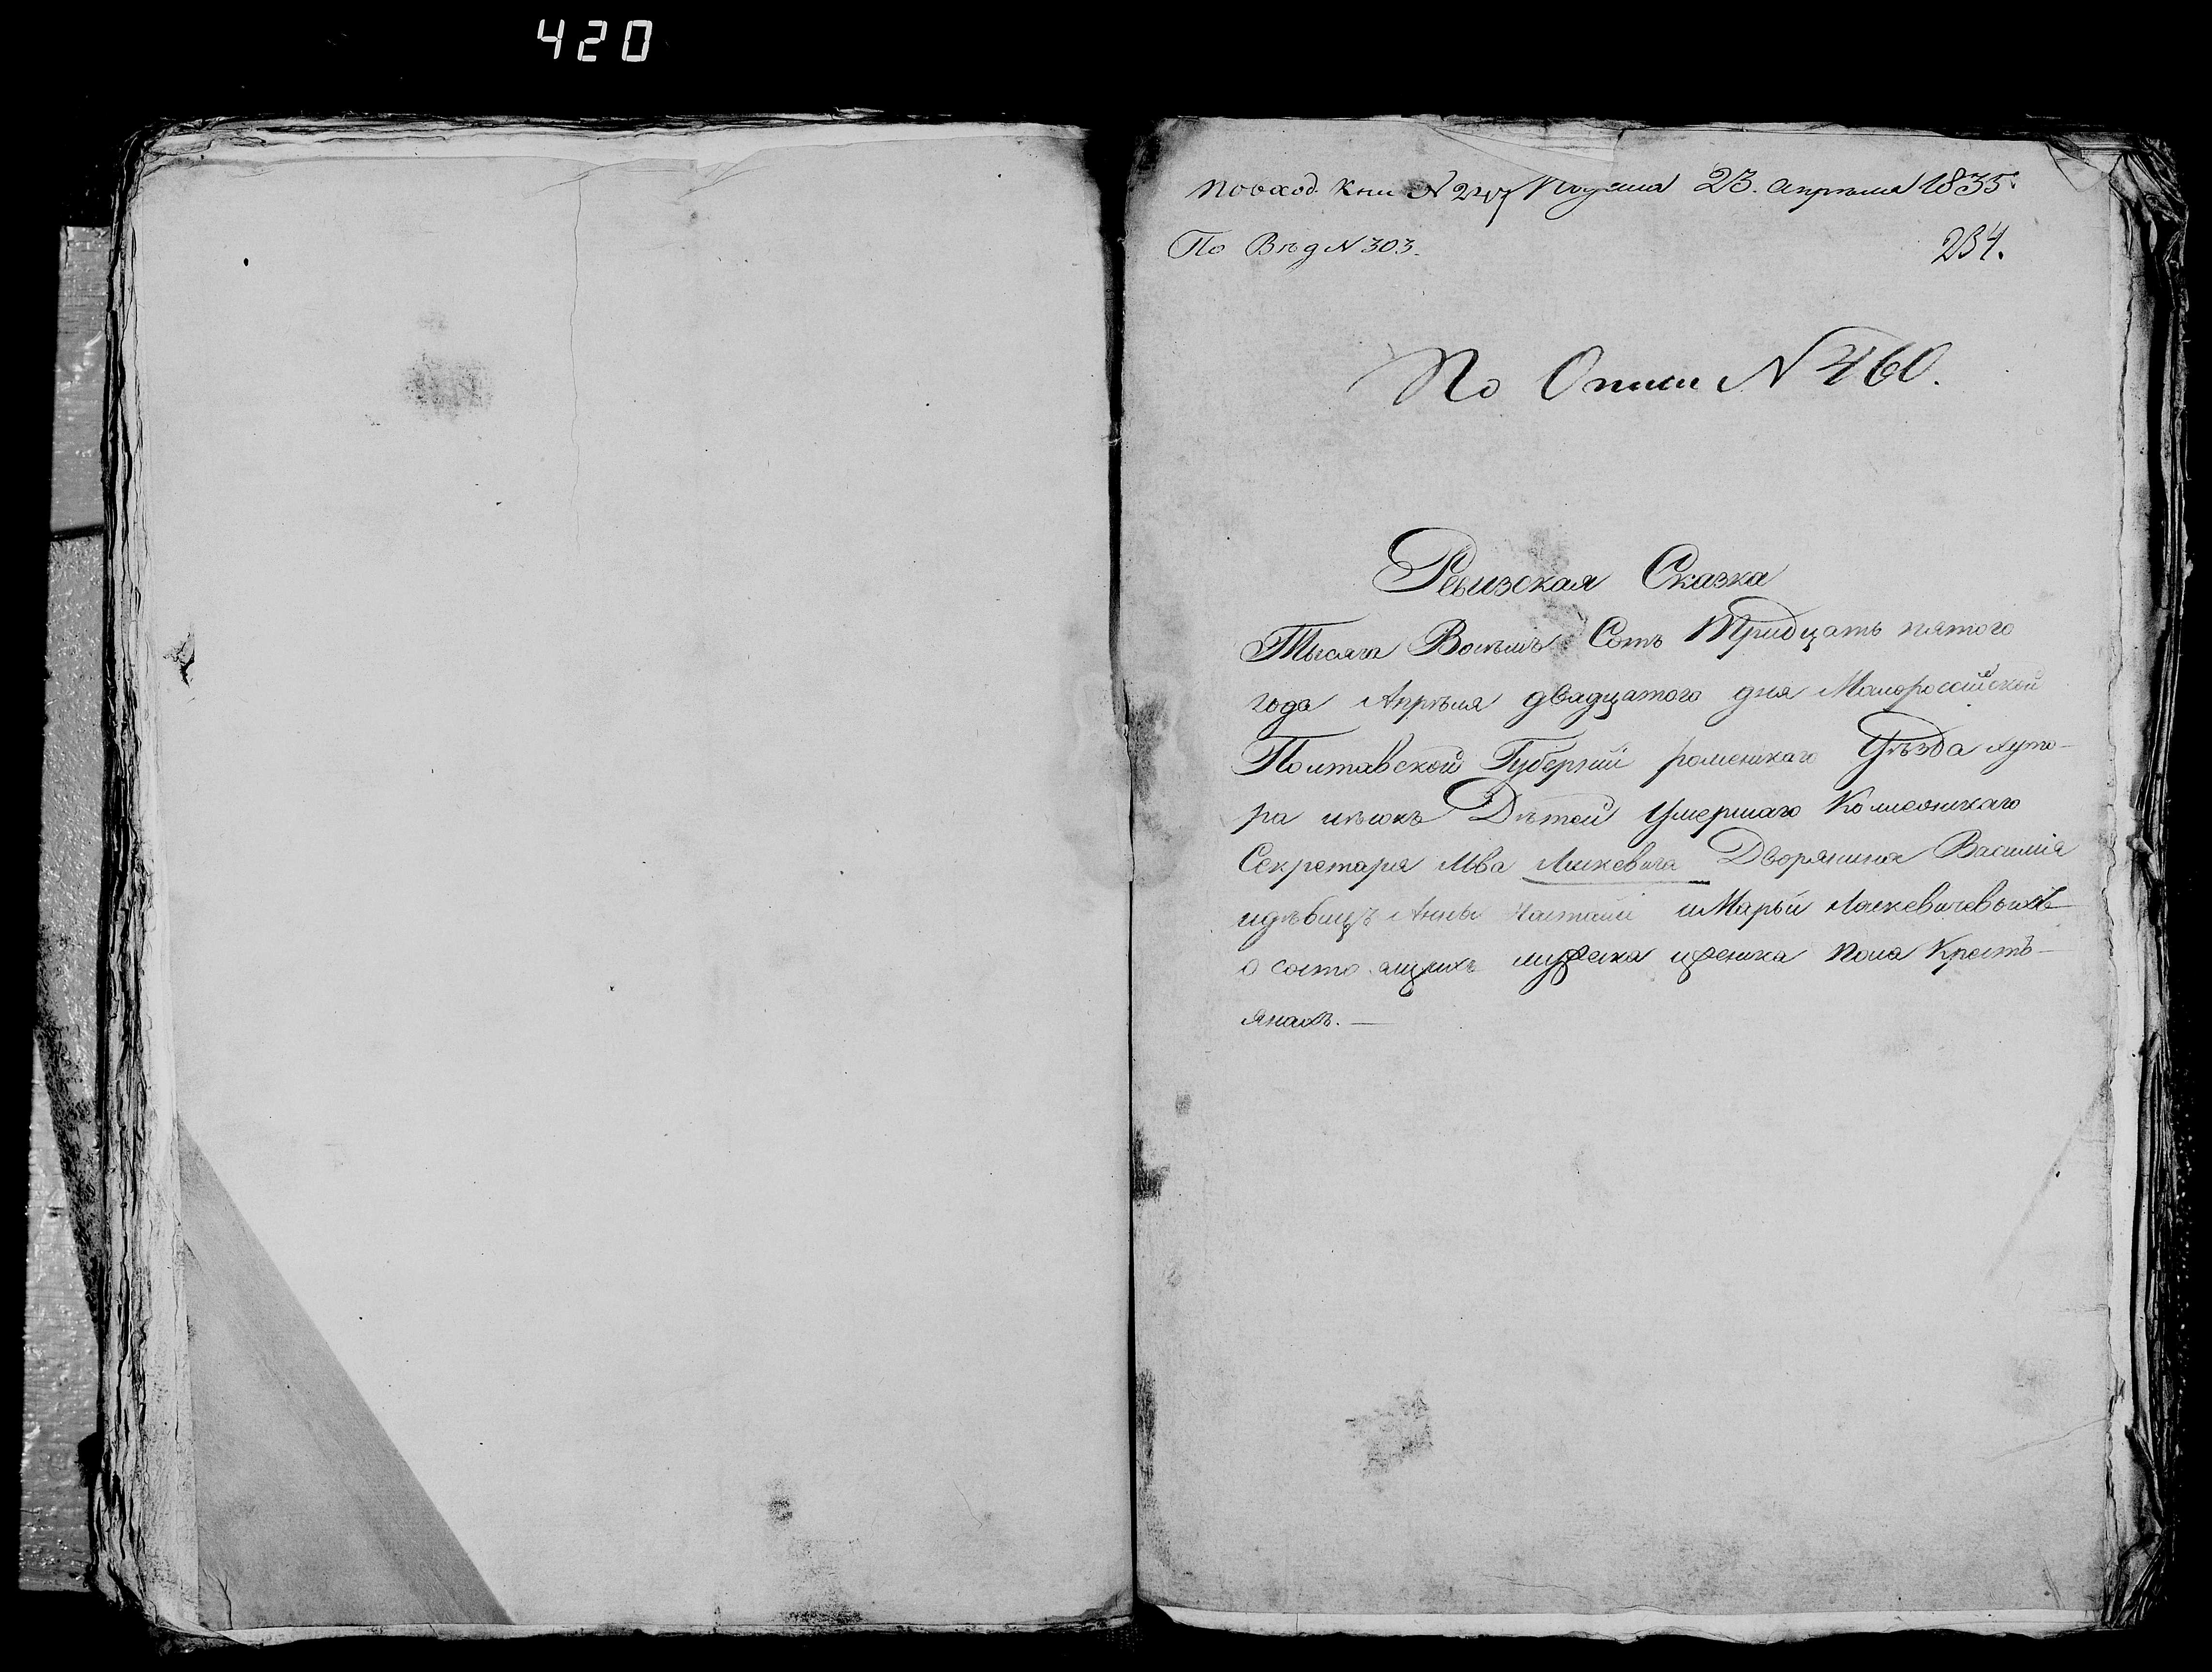 420
По вход. Кни N 247 Подана 23. апреля 1835.
По Вѣд N 303.
234.
По Описи N 460.
Ревизская Сказка
Тысяча Восемь Сотъ Тридцать пятого
года Апрѣля двадцатого дня Малоросийской
Полтавской Губернии роменскаго Уѣзда хуто-
ра Дѣтей Умершаго
Секретаря Льва Дворянина Василия
идѣвицъ Анны иМарьи
о состоящихъ мужеска иженска пола Крестъ-
янахъ. —